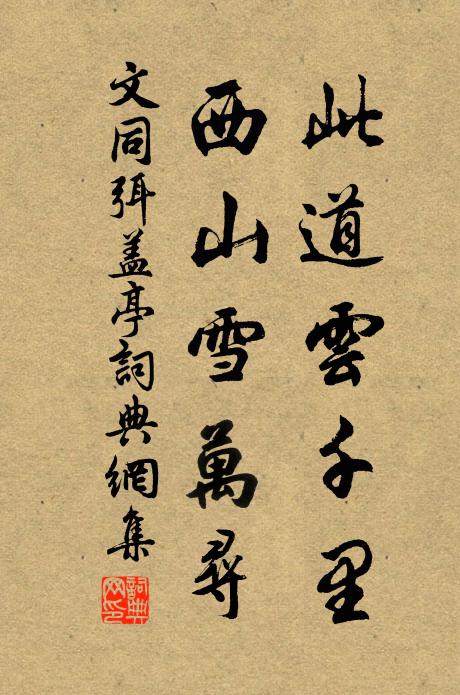 此道雲千里
西山雪萬尋
文同弭盖亭詞典網集
詞典网印